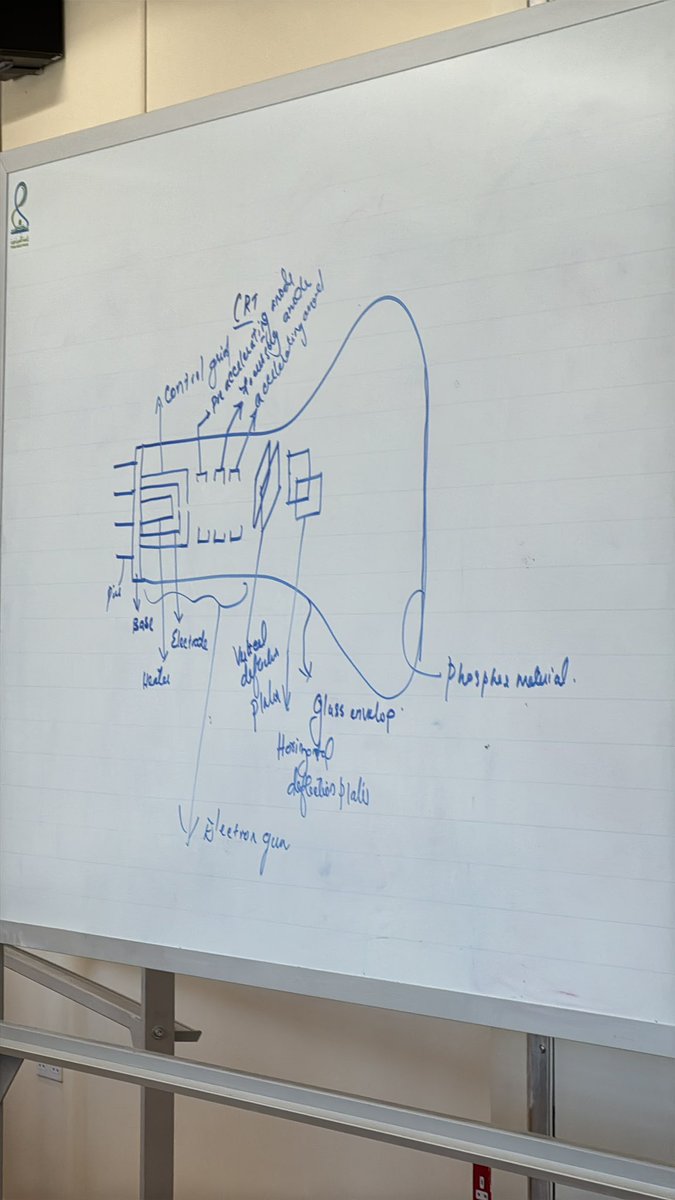 CRT
Control grid
pre accelerating anode
focusing anode
accelerating anod
Base
Electrode
Heater
Vertical
deflection
plates
Glass envelop
Horizontal
deflection plates
Phosphor material.
Electron gun